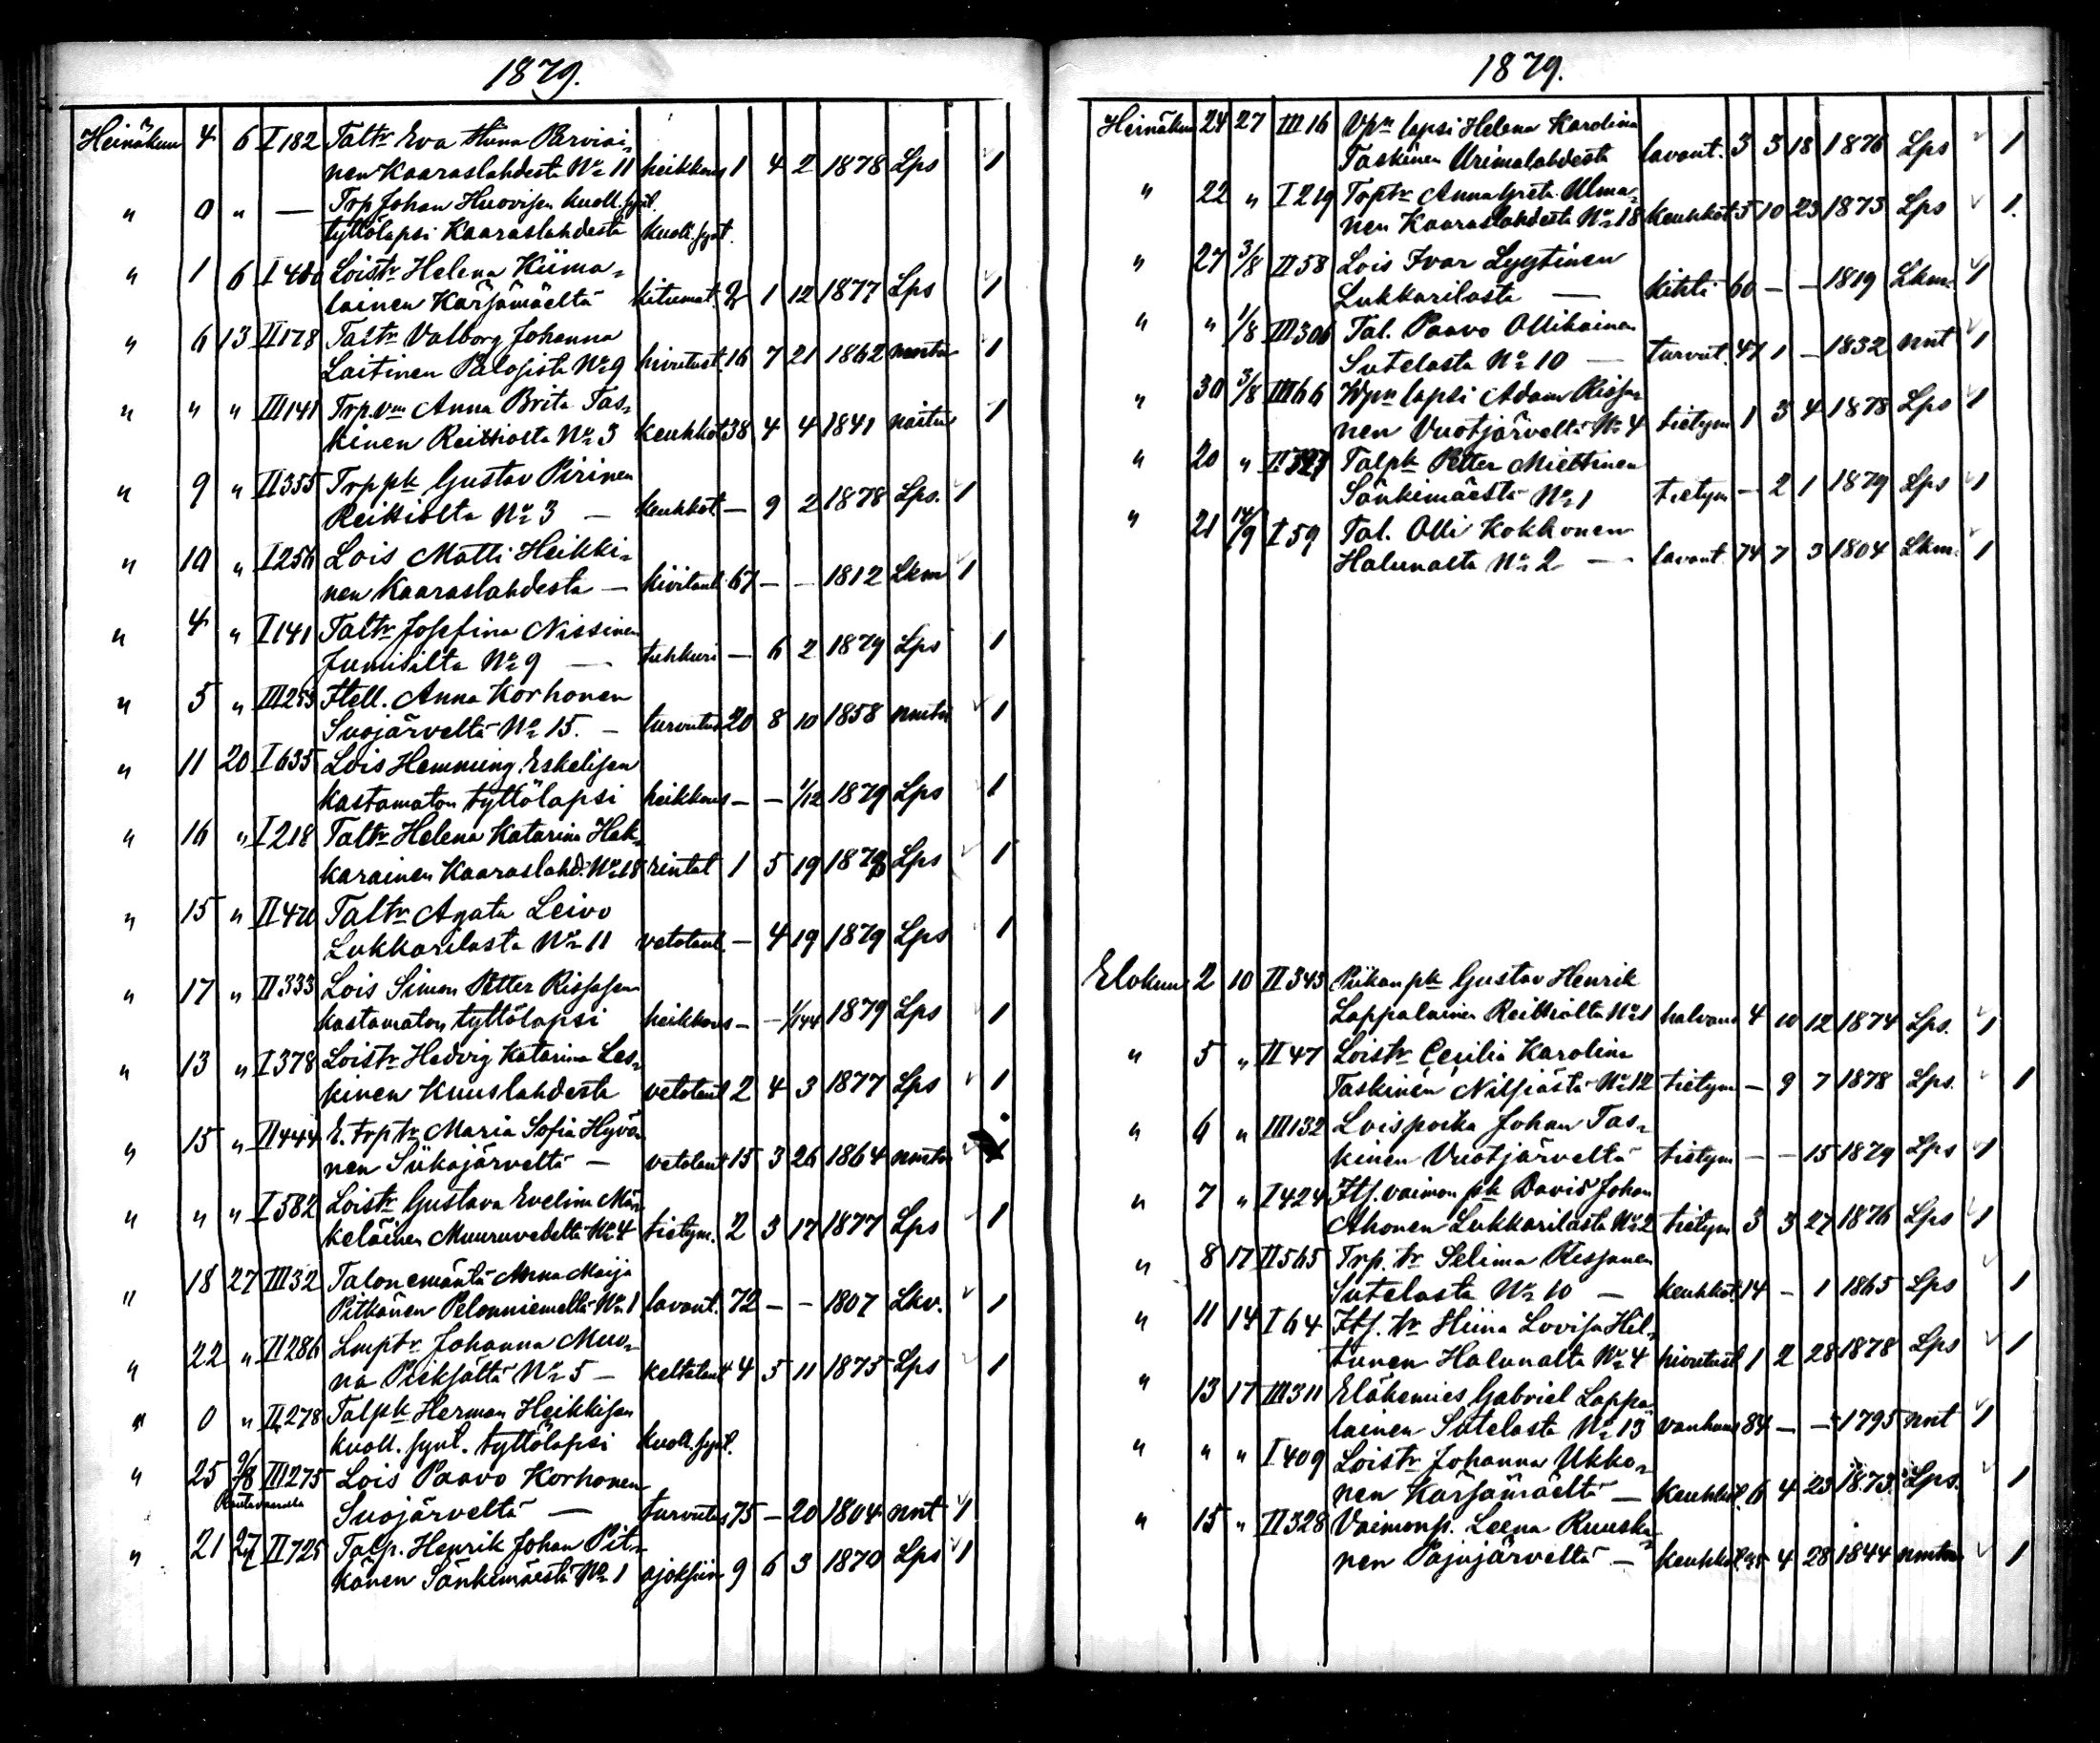 1879.
Heinäkuu 4 6 I 182 Taltr Eva Stiina Parviai-
nen Kaaraslahdesta No 11 heikkous 1 4 2 1878 Lps 1
" 0 " — Trp Johan Huovisen kuoll. synt.
tyttölapsi Kaaraslahdesta kuoll. synt.
" 1 6 I 480 Loistr Helena Kiima-
lainen Kärsämäeltä kitumat. 2 1 12 1877 Lps 1
" 6 13 II 178 Taltr Valborg Johanna
Laitinen Palosista No 9 hivutust. 16 7 21 1862 nmtn 1
" " " III 141 Trp.vm Anna Brita Tas-
kinen Reittiolta No 3 keuhkot 38 4 4 1841 naitu 1
" 9 " II 355 Trp pk Gustav Pirinen
Reittiolta No 3 — keuhkot — 9 2 1878 Lps. 1
" 10 " I 256 Lois Matti Heikki-
nen Kaaraslahdesta — kivitaut. 67 — — 1812 Lkm 1
" 4 " I 141 Taltr Josefina Nissinen
Jumisilta No 9 — tuhkuri — 6 2 1879 Lps 1
" 5 " III 253 Itell. Anna Korhonen
Suojärveltä No 15. — turvutus 20 8 10 1858 nmtn 1
" 11 20 I 635 Lois Hemming Eskelisen
kastamaton tyttölapsi heikkous — — 1/12 1879 Lps 1
" 16 " I 218 Taltr Helena Katarina Hak-
karainen Kaaraslahd. No 18 rintat 1 5 19 1878 Lps 1
" 15 " II 420 Taltr Agata Leivo
Lukkarilasta No 11 vetotaut. — 4 19 1879 Lps 1
" 17 " II 333 Lois Simon Petter Rissasen
kastamaton tyttölapsi heikkous — — 1/144 1879 Lps 1
" 13 " I 378 Loistr Hedvig Katarina Les-
kinen Kuuslahdesta vetotaut 2 4 3 1877 Lps 1
" 15 " II 444 E. trp tr Maria Sofia Hyvö-
nen Siikajärveltä — vetotaut 15 3 26 1864 nmtn 1
" " " I 582 Loistr Gustava Evelina Män-
keläinen Muuruvedeltä No 4 tietym. 2 3 17 1877 Lps 1
" 18 27 III 32 Talonemäntä Anna Maija
Pitkänen Pelonniemeltä No 1 lavant. 72 — — 1807 Lkv. 1
" 22 " II 286 Lmptr Johanna Muo-
na Pieksältä No 5 — keltataut 4 5 11 1875 Lps 1
" 0 " II 278 Talpk Herman Heikkisen
kuoll. synt. tyttölapsi kuoll. synt.
" 25 9/8 III 275 Lois Paavo Korhonen
Suojärveltä — turvutus 75 — 20 1804 nnt 1
" 21 27/7 II 725 Talp. Henrik Johan Pit-
känen Sänkimäestä No 1 ajoksiin 9 6 3 1870 Lps 1
1879.
Heinäkuu 24 27 III 16 Vpn lapsi Helena Karolina
Taskinen Urimalahdesta lavant. 3 3 18 1876 Lps 1
" 22 " I 219 Trptr Anna Greta Ulma-
nen Kaaraslahdesta No 18 keuhkot 5 10 23 1873 Lps 1.
" 27 3/8 II 58 Lois Ivar Lyytinen
Lukkarilasta — kihti 60 — — 1819 Lkm. 1
" " 1/8 III 306 Tal. Paavo Ollikainen
Sutelasta No 10 — turvut. 47 1 — 1832 nnt 1
" 30 3/8 III 66 Wpn lapsi Adam Rissa-
nen Vuotjärveltä No 4 tietym 1 3 4 1878 Lps 1
" 20 " II 727 Talpk Petter Miettinen
Sänkimäestä No 1 tietym — 2 1 1879 Lps 1
" 21 14/9 I 59 Tal. Olli Kokkonen
Halunalta No 2 — lavant 74 7 3 1804 Lkm. 1
Elokuu 2 10 II 343 Piikan pk Gustav Henrik
Lappalainen Reittiolta No 1 halvaus 4 10 12 1874 Lps. 1
" 5 " II 47 Loistr Cecilia Karolina
Taskinen Nilsiästä No 12 tietym — 9 7 1878 Lps. 1
" 6 " III 132 Loispoika Johan Tas-
kinen Vuotjärveltä tietym — — 15 1879 Lps 1
" 7 " I 424 Its. vaimon pk David Johan
Ahonen Lukkarilasta No 2 tietym 3 3 27 1876 Lps 1
" 8 17 II 565 Trp. tr Selima Rissanen
Sutelasta No 10 — keuhkot. 14 — 1 1865 Lps 1
" 11 14 I 64 Its. tr Stiina Lovisa Hil-
tunen Halunalta No 4 hivutust 1 2 28 1878 Lps 1
" 13 17 III 311 Eläkemies Gabriel Lappa-
lainen Sutelasta No 13 vanhuus 84 — — 1795 nnt 1
" " " I 409 Loistr Johanna Ukko-
nen Kärsämäeltä — keuhkot. 6 4 23 1873 Lps. 1
" 15 " II 328 Vaimonp. Leena Ruuska-
nen Pajujärveltä — keuhkot. 35 4 28 1844 nmtn 1